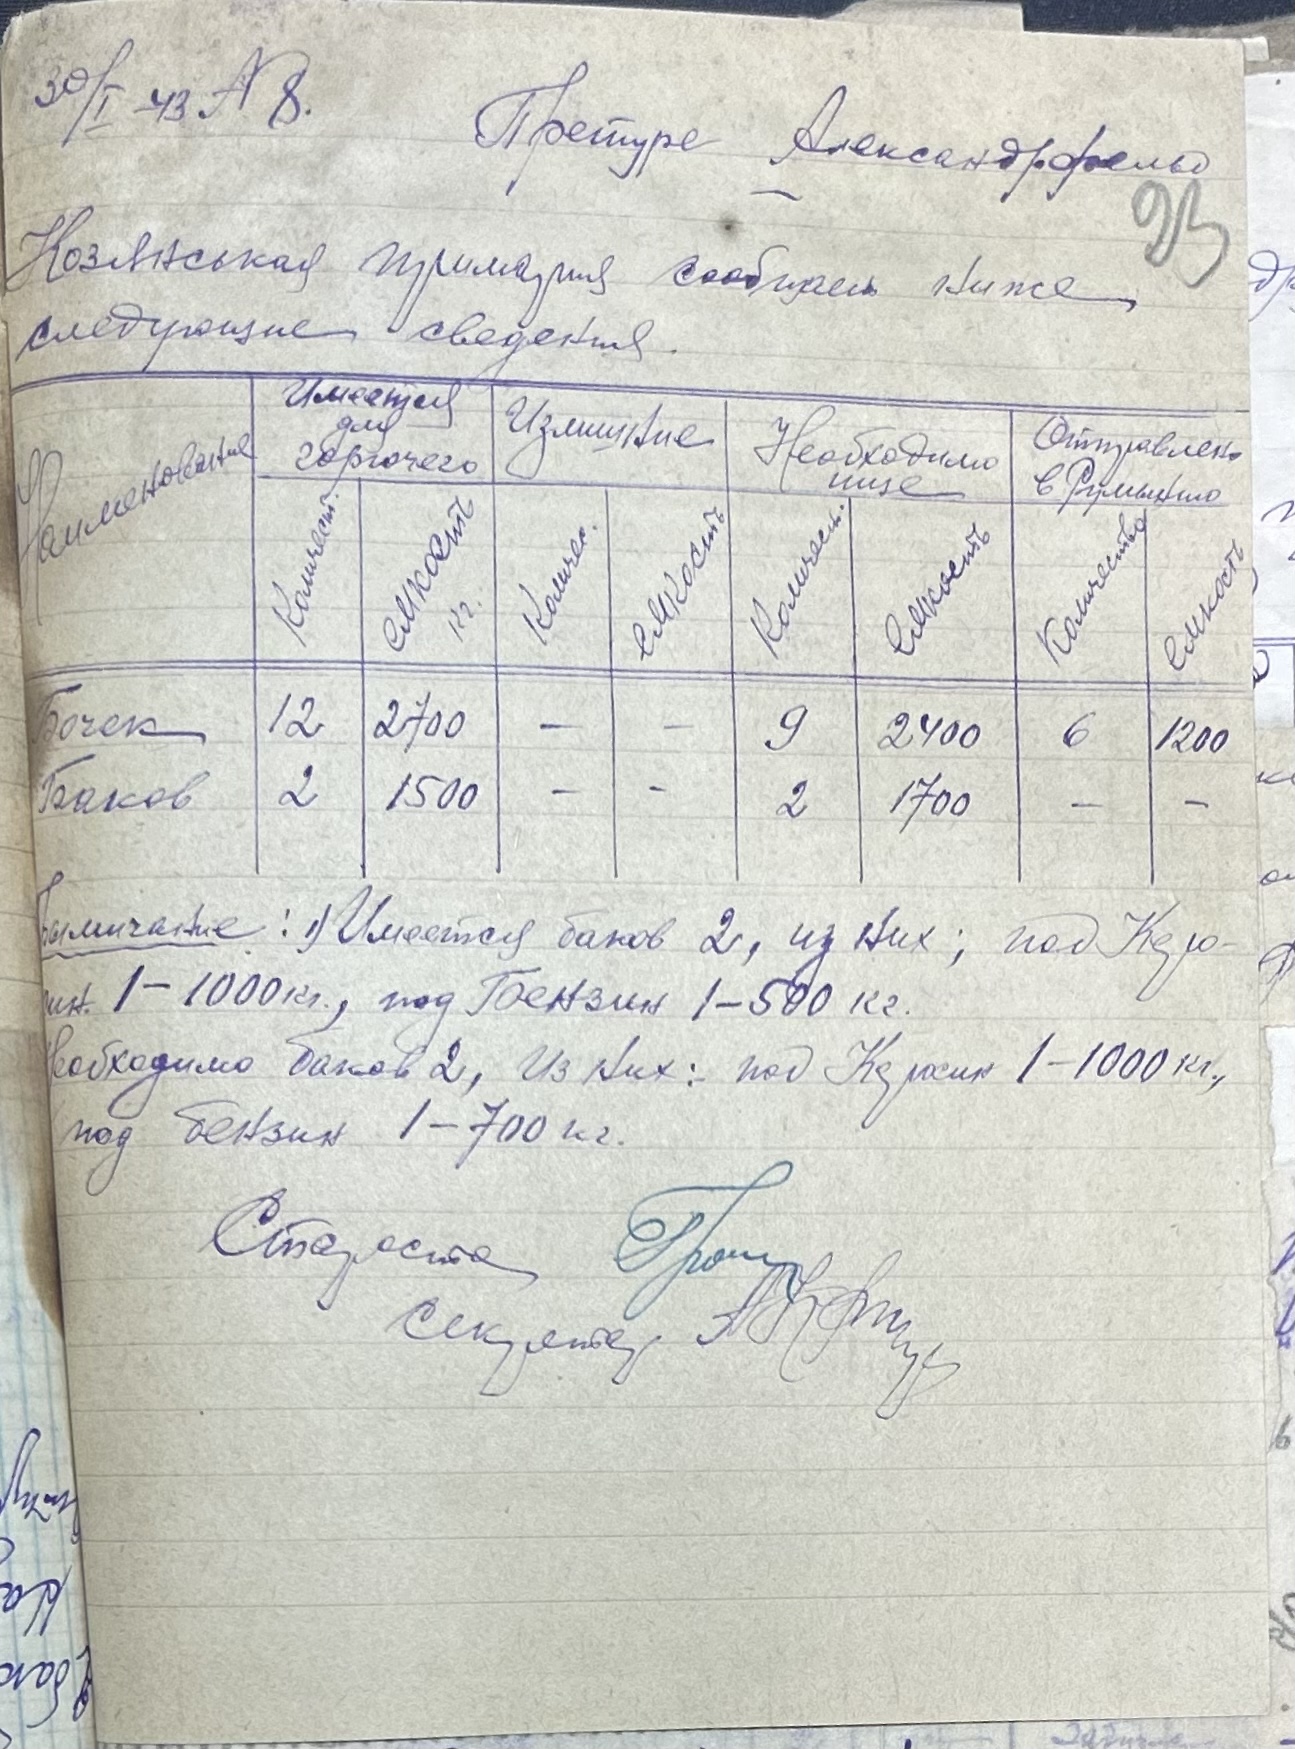 30/I -43 № 8.
Претуре Александрфельд
23
Козлянськая примария сообщает ниже
следующие сведения.
Наименование
Имеется для горючего
Излишние
Необходимо
еще
Отправлено
в Румынию
Количест.
емкость кг.
Количес.
емкость
Количест.
емкость
Количество
емкость
Бочек 12 2700 – – 9 2400 6 1200
Баков 2 1500 – – 2 1700 – –
Примичание: 1) Имеется баков 2, из них; под Керо-
ин. 1–1000 кг., под Бензин 1–500 кг.
Необходимо баков 2, из них: под Керосин 1–1000 кг.,
под бензин 1–700 кг.
Староста
Секретар